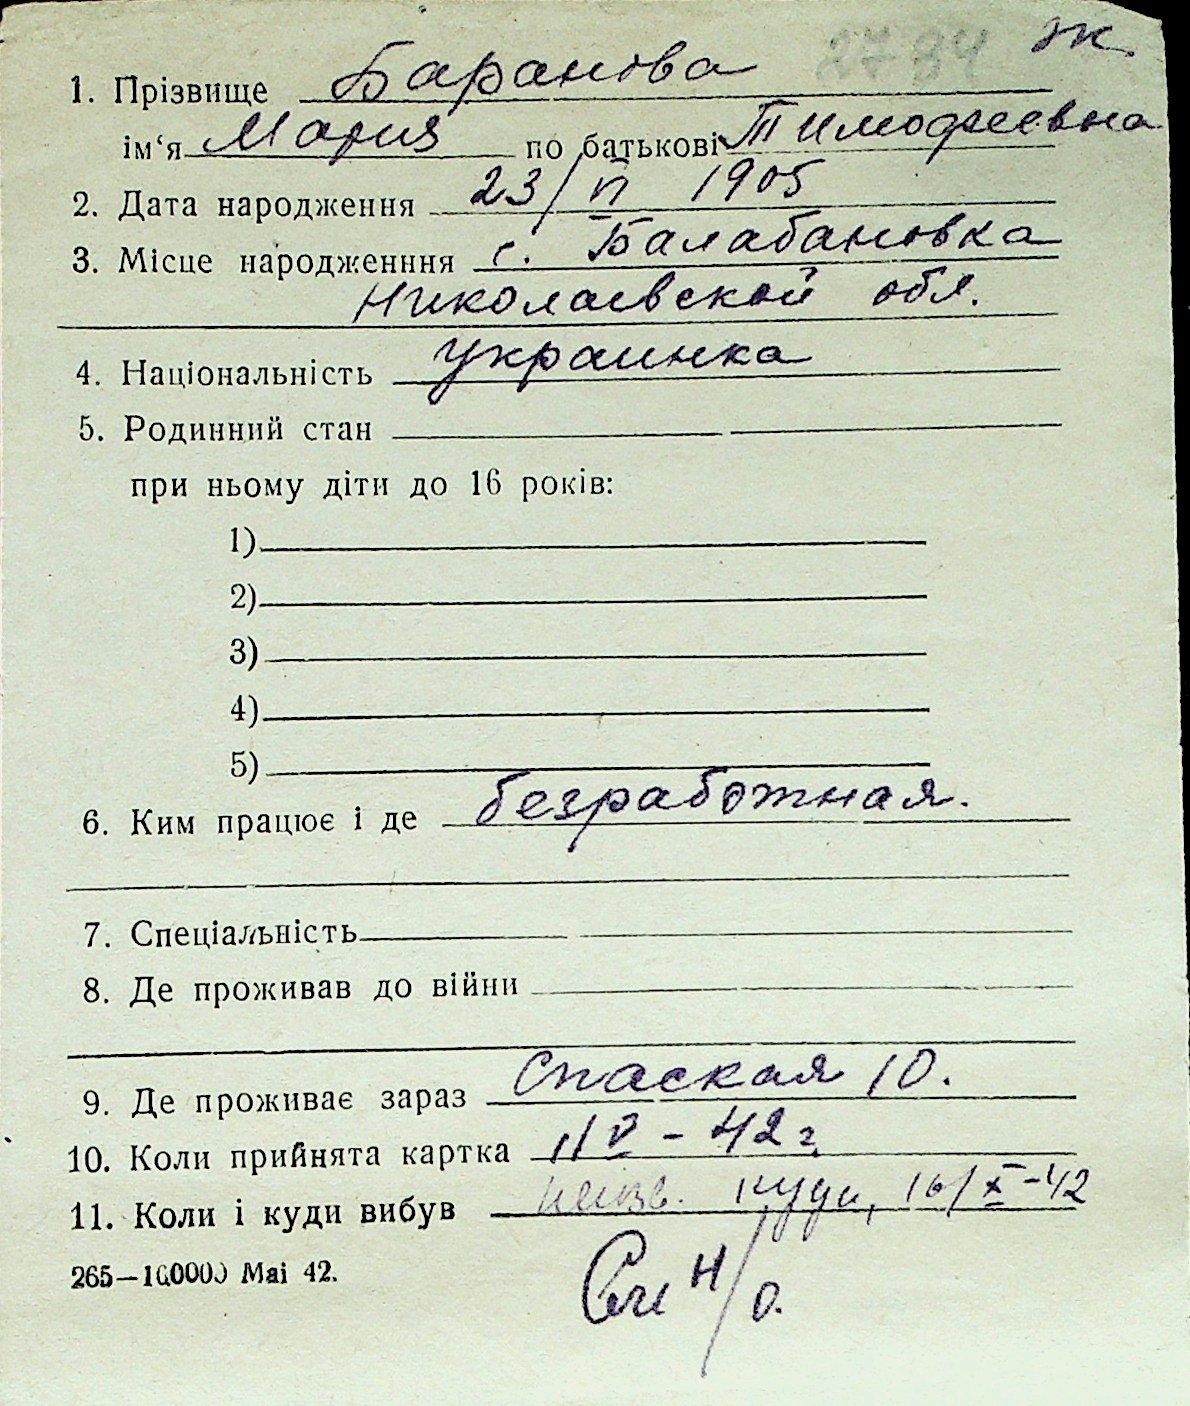 2794 ж.
1. Прізвище Баранова
ім‘я Мария по батькові Тимофеевна
2. Дата народження 23/VI 1905
3. Місце народженння с. Балабановка
Николаевской обл.
4. Національність украинка
5. Родинний стан
при ньому діти до 16 років:
1)
2)
3)
4)
5)
6. Ким працює і де безработная.
7. Спеціальність
8. Де проживав до війни
9. Де проживає зараз Спаская 10.
10. Коли прийнята картка - 42 г.
11. Коли і куди вибув неизв. куди, 16/X-42
265—100000 Mai 42.
См н/о.